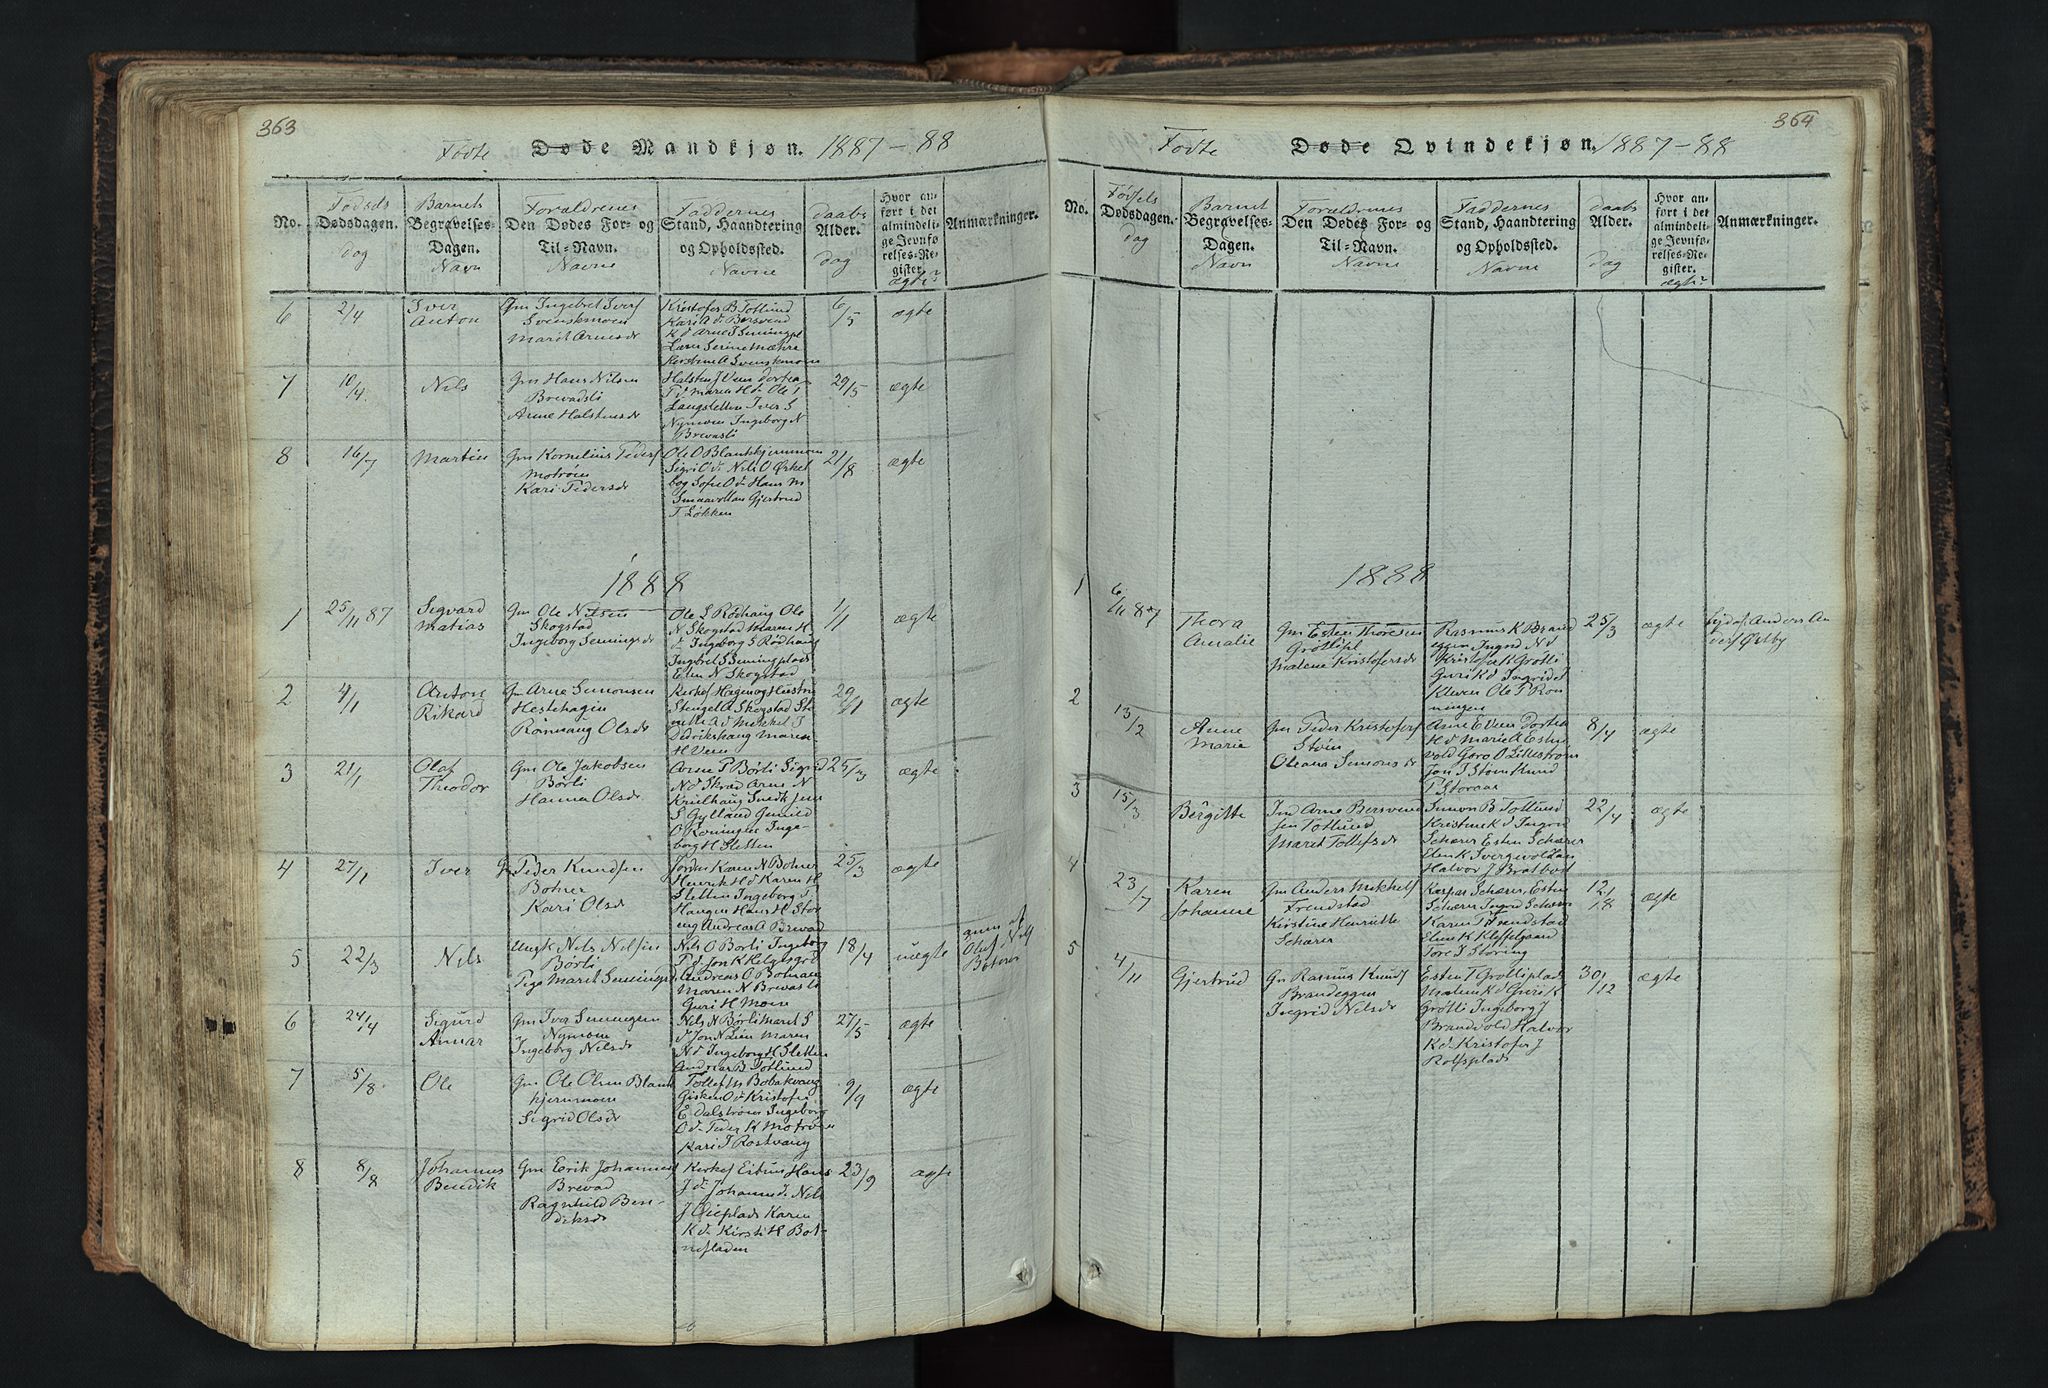 363
Fødte Døde Mandkjøn. 1887-88
No.
Fødsels Dødsdagen. dag
Barnet Begravelses-Dagen. Navn
Forældrenes Den Dødes For- og Til-Navn. Navne
Faddernes Stand, Haandtering og Opholdssted. Navne
daabs Alder. dag
Hvor anført i det almindelige Jevnførelses-Register. ægte?
Anmærkninger.
6 2/4 Iver Anton
Gm Ingebret Svenskmoen
Marit Arnesdr
Kristofer B Totlund
Kari A
Kd Arne J
Svenskmoen
6/5 ægte
7 10/4 Nils
Gm Hans Nilsen
Brevadsli
Anne Halstensdr
Halsten J Veen Dortea
Td Maren Hd Ole T
Langsletten Iver S
Nymoen Ingeborg N
Brevasli
29/5 ægte
8 16/7 Martin
Gm Kornelius Peders
Motrøen
Kari Pedersdr
Ole O
Sigri Od Nils O
Hans M
Gjertrud
T Løkken
21/8 ægte
1888
1 25/11 87 Sigvard Matias
Gm Ole Nilsen
Skogstad
Ingeborg Semingsdr
Ole S Rødhaug Ole
N Skogstad Maren H
d Ingeborg S Rødhaug
Ingebret S Semingplads
Elen N Skogstad
1/1 ægte
2 4/1 Anton Rikard
Gm Arne Simonsen
Hestehagen
Rønnaug Olsdr
Kirkes Hagen og Hustru
Stengel A Skogstad
Mikkel J
Dedrikshaug Maren
H Veen
29/1 ægte
3 21/1 Olaf Theodor
Gm Ole Jakobsen
Børli
Hanna Olsdr
Arne P Børli Sigrid
Nd Arne N
S Gylland Gunild
O Roningen Inge-
borg H Sletten
25/3 ægte
4 27/1 Iver
Gm Peder Knudsen
Botner
Kari Olsdr
Henrik Hd Karen H
Sletten Ingeborg
Haugen Hans H
Andreas A Brevad
25/3 ægte
5 22/3 Nils
Ungk Nils Nilsen
Børli
Pige Marit Semingsdr
Nils O Børli Ingeborg
Pd Jon K Helgesgod
Andreas O
Maren N Brevasli
Guri H Moen
18/4 uægte
Oluf Nils
6 24/4 Sigurd Annar
Gm Iver Semingsen
Nymoen
Ingeborg Nilsdr
Nils N Børli Marit S
d Jon N Løen Maren
Nd Ingeborg H Sletten
Andreas B Totlund
27/5 ægte
7 5/8 Ole
Gm Ole Olsen Blank
hjernmoen
Sigrid Olsdr
Tollef M Bobakvang
Gisken Od Kristofer
E Dalstrøen Ingeborg
Od Peder K Motrøen
Kari J Rostvang
9/9 ægte
8 8/8 Johannes Bendik
Gm Eerik Johannes
Brevad
Ragnhild Ben-
diksdr
Hans
Jd Johannes Nils
J Oieplads Karen
Kd Kirsti H Bot-
nesladen
23/9 ægte
364
Fødte Døde Qvindekjøn. 1887-88
No.
Fødsels Dødsdagen. dag
Barnet Begravelses-Dagen. Navn
Forældrenes Den Dødes For- og Til-Navn. Navne
Faddernes Stand, Haandtering og Opholdssted. Navne
daabs Alder. dag
Hvor anført i det almindelige Jevnførelses-Register. ægte?
Anmærkninger.
1888
1 6/11 87 Thora Amalie
Gm Esten Thoresen
Grøtlipl
Malene Kristofersdr
Rasmus K Brand
eggen Ingrid Nd
Kristofer K Grøtli
Guri Kd Ingrid
Kleven Ole P Ron
ningen
25/3 ægte
Anders An
ders Østby
2 13/2 Anne Marie
Gm Peder Kristofers
Støen
Oleana Simonsdr
Arne E Veen Dortea
Hd Marie A Esten
vold Goro O Lillestrøm
Jon J Støen Knud
P Storaas
8/4 ægte
3 15/3 Bergitte
Ind Arne Bersven
sen Totlund
Marit Tollefsdr
Simon B Totlund
Kristine Kd Ingrid
Schærer Esten Schærer
Elen K
Halvor J
22/4 ægte
4 23/7 Karen Johanne
Gm Anders Mikkels
Trenstad
Kirstine Henriette
Schærer
Kaspar Schærer, Esten
Schærer Ingrid Schærer
Karen T Trenstad
Elen K Kleffelgaard
Tore J Storing
12/8 ægte
5 4/11 Gjertrud
Gm Rasmus Knuds
Brandeggen
Ingrid Nilsdr
Esten T Grøtliplads
Malene Kd Guri K
Grøtli Ingeborg J
Brandvold Halvor
Kd Kristofer J
Rolfsplads
30/12 ægte